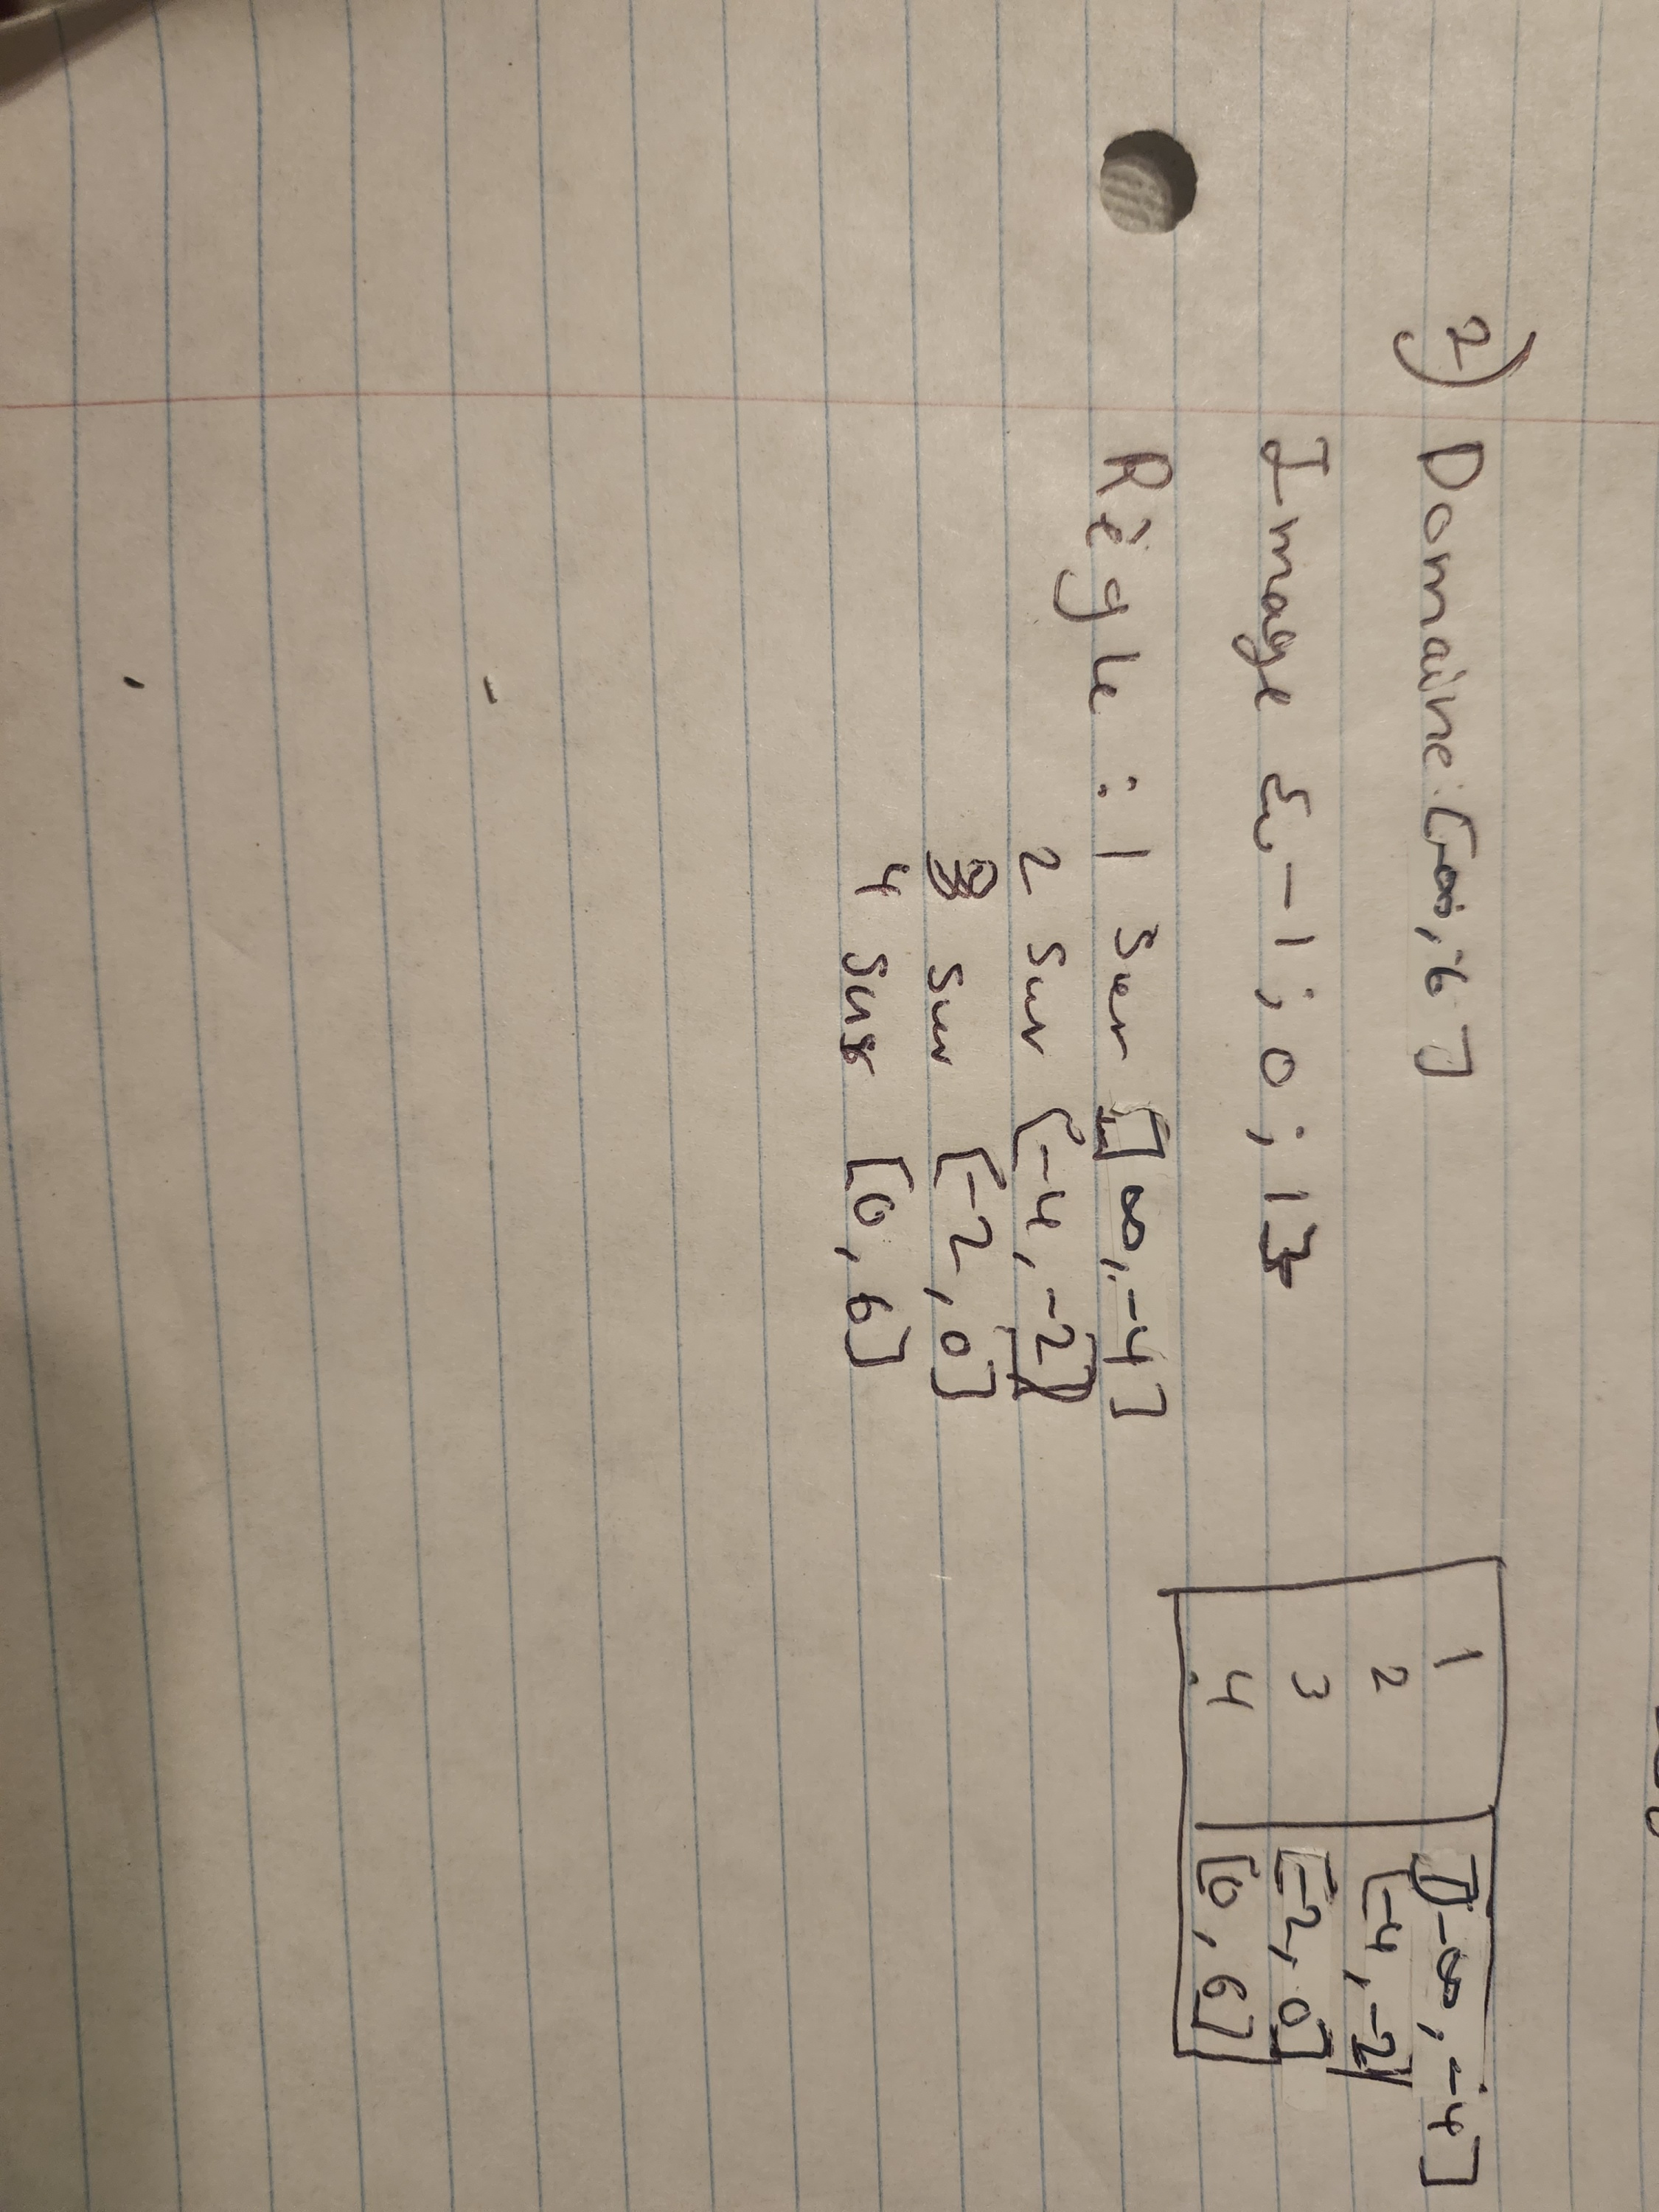 2) Domaine: [-∞, 6]
Image {-1; 0; 1}
Règle : 1 sur ]∞, -4]
2 sur [-4, -2]
3 sur [-2, 0]
4 sur [0, 6]
1 ]-∞, -4]
2 [-4, -2]
3 [-2, 0]
4 [0, 6]